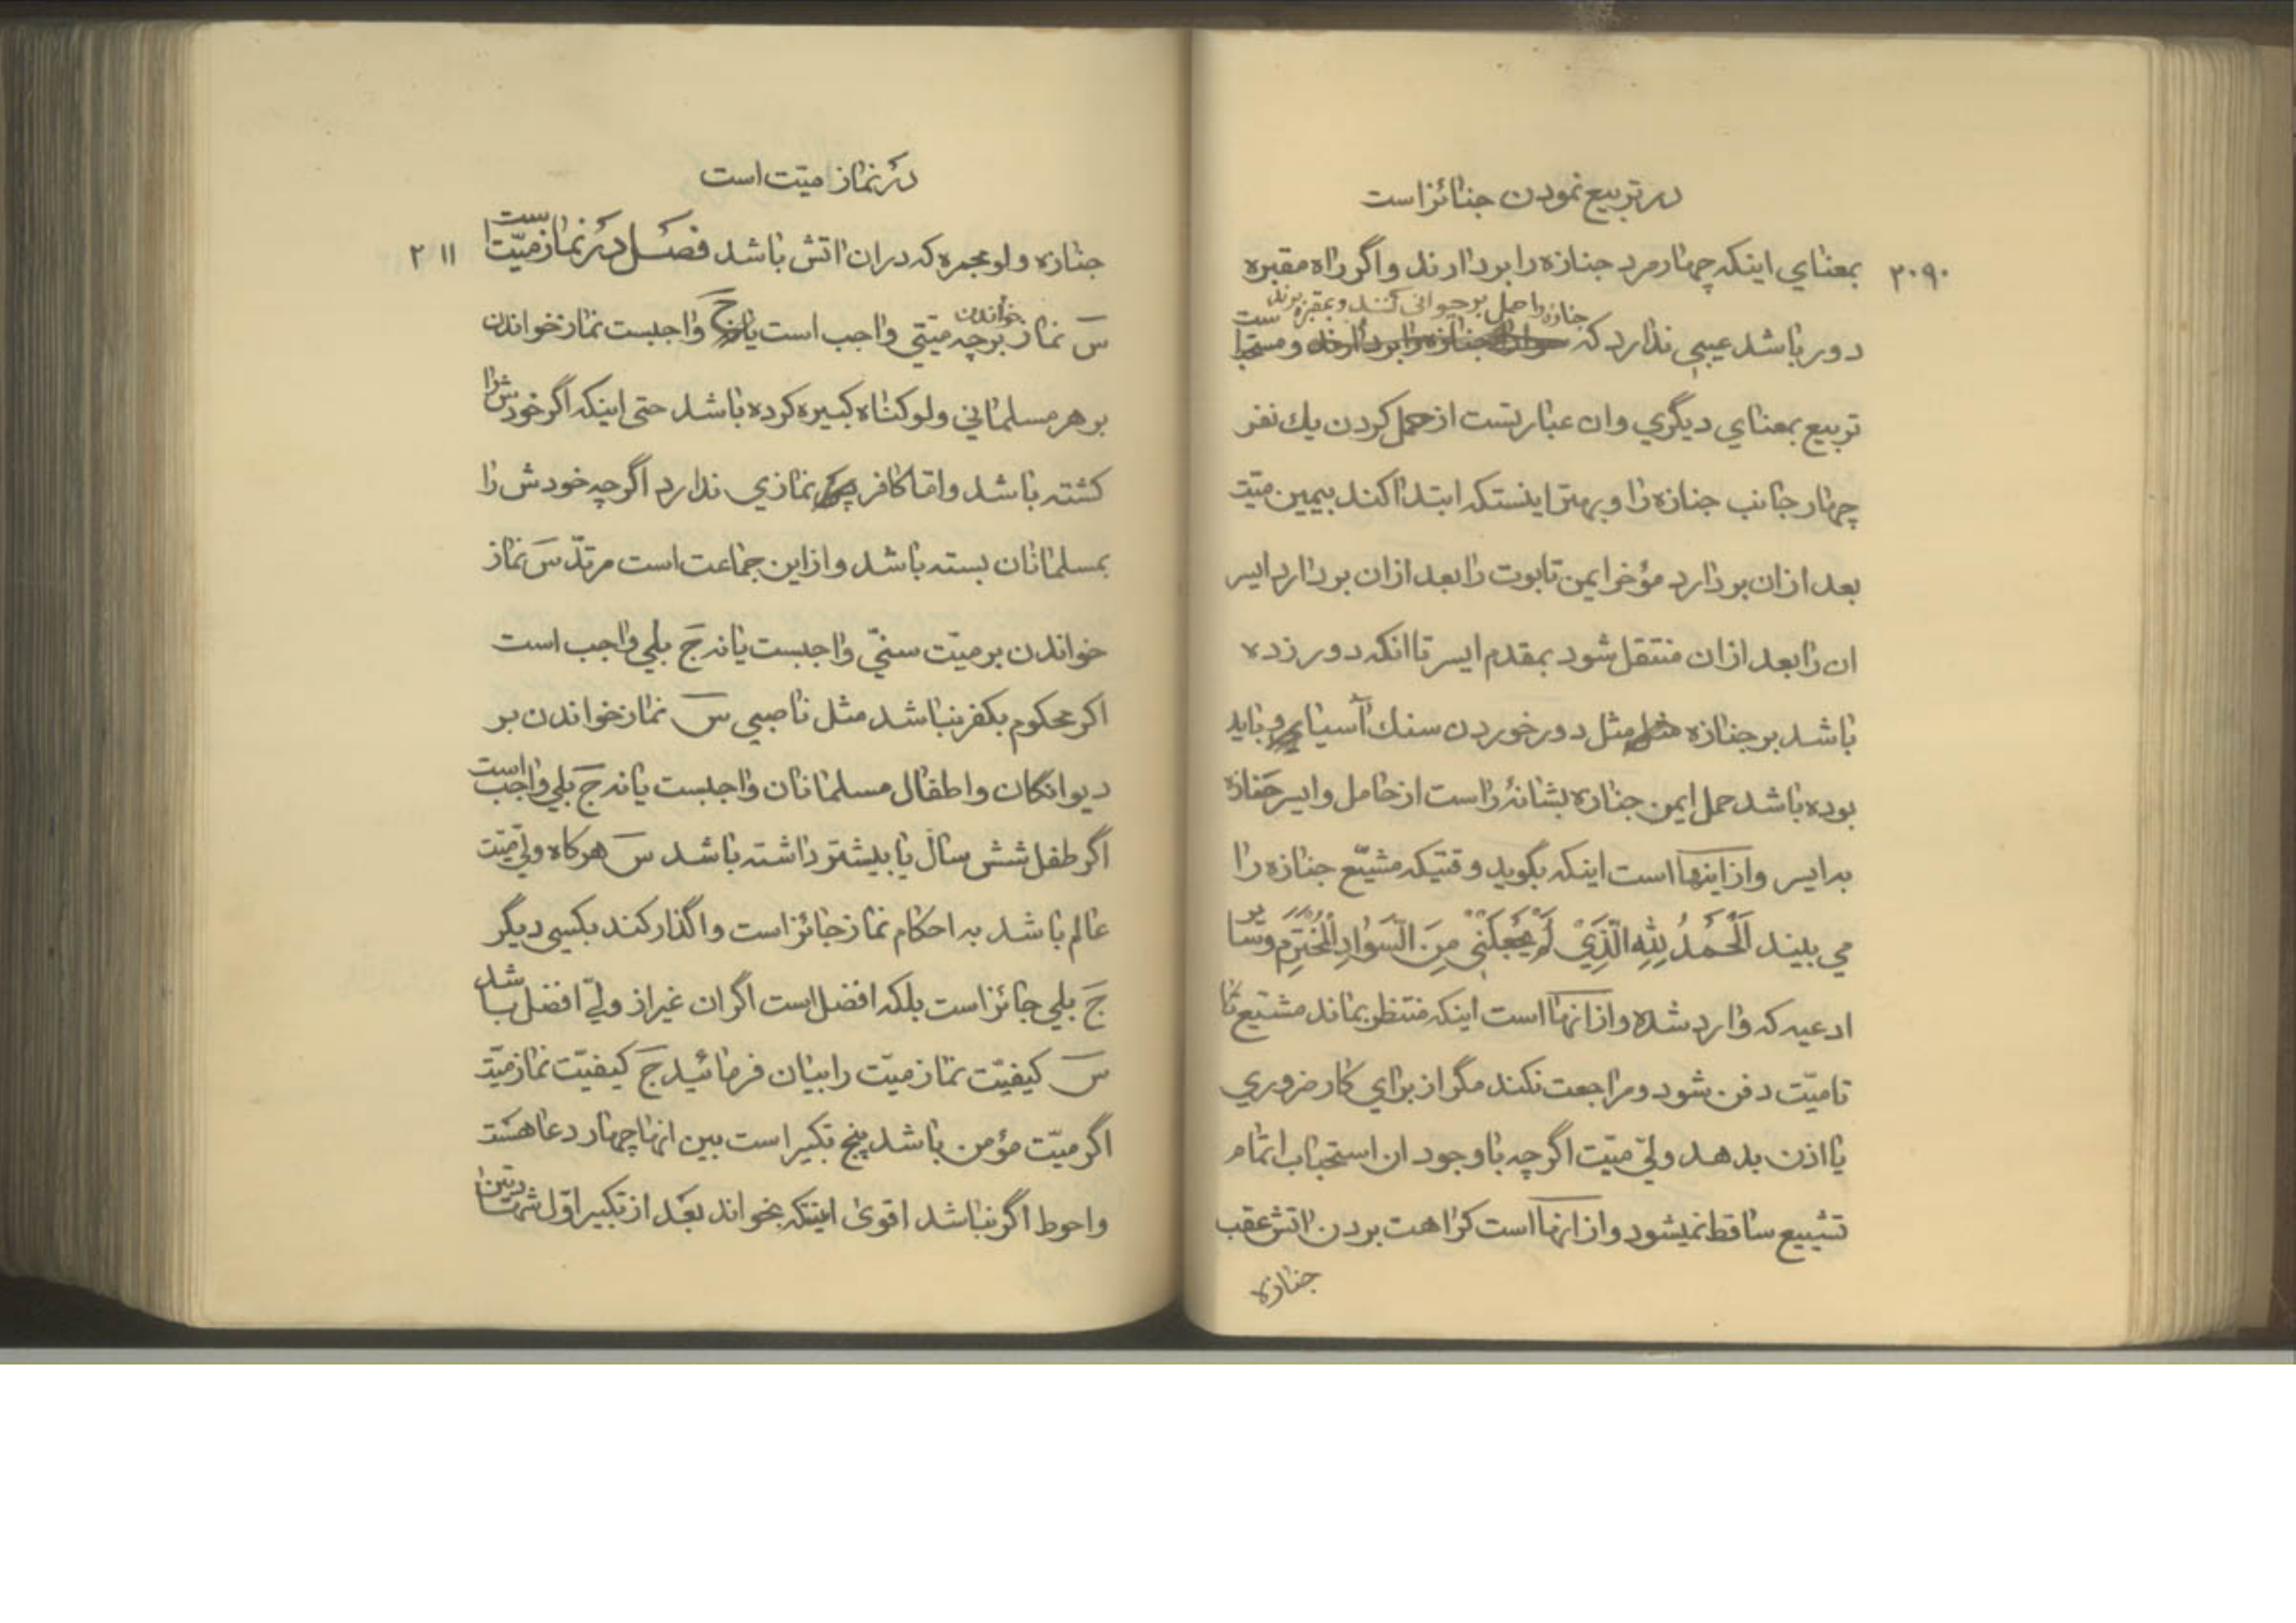 در تربیع نمودن جنائز است
۲۰۹۰
بمعنای اینکه چهار مرد جنازه را بردارند و اگر راه مقبره
جنازه را حمل بر حیوانی کنند و بمقبره برند
دور باشد عیبی ندارد که و مستحبا ست
تربیع بمعنای دیگری وان عبارتست از حمل کردن یك نفر
چهار جانب جنازه را و بهتر اینستکه ابتدا کند بیمین میّت
بعد ازان بردارد مؤخر ایمن تابوت را بعد ازان بردارد ایسر
ان را بعد ازان منتقل شود بمقدم ایسر تا انکه دور زده
باشد بر جنازه مثل دور خوردن سنك آسیا و باید
بوده باشد حمل ایمن جنازه بشانهٔ راست از حامل و ایسر جنازه
به ایسر و از اینها است اینکه بگوید وقتیکه مشیّع جنازه را
می بیند اَلْحَمْدُ لِلّٰهِ الَّذِیْ لَمْ یَجْعَلْنِی مِنَ السَّوَادِ الْمُخْتَرَمِ و سایر
ادعیه که وارد شده و از انها است اینکه منتظر بماند مشیّع تا
تا میّت دفن شود و مراجعت نکند مگر از برای کار ضروری
یا اذن بدهد ولیّ میّت اگر چه با وجود ان استحباب اتمام
تشییع ساقط نمیشود و از انها است کراهت بردن اتش عقب
جنازه
در نماز میّت است
۲۱۱
جنازه ولو مجمره که دران اتش باشد فصل در نماز میّت است
سَ نماز خواندن بر چه میّتی واجب است جَ واجبست نماز خواندن
بر هر مسلمانی ولو کناه کبیره کرده باشد حتی اینکه اگر خودش را
کشته باشد و امّا کافر نمازی ندارد اگر چه خودش را
بمسلمانان بسته باشد و از این جماعت است مرتدّ سَ نماز
خواندن بر میّت سنّی واجبست یا نه جَ بلی واجب است
اکر محکوم بکفر نباشد مثل ناصبی سَ نماز خواندن بر
دیوانکان و اطفال مسلمانان واجبست یا نه جَ بلی واجب است
اگر طفل شش سال یا بیشتر داشته باشد سَ هر کاه ولیّ میّت
عالم باشد به احکام نماز جائز است واگذار کند بکسی دیگر
جَ بلی جائز است بلکه افضل است اگر ان غیر از ولیّ افضل باشد
سَ کیفیّت نماز میّت را بیان فرمائید جَ کیفیّت نماز میّت
اگر میّت مؤمن باشد پنج تکبیر است بین انها چهار دعا هست
واحوط اگر نباشد اقوی اینکه بخواند بعد از تکبیر اوّل شهادتین